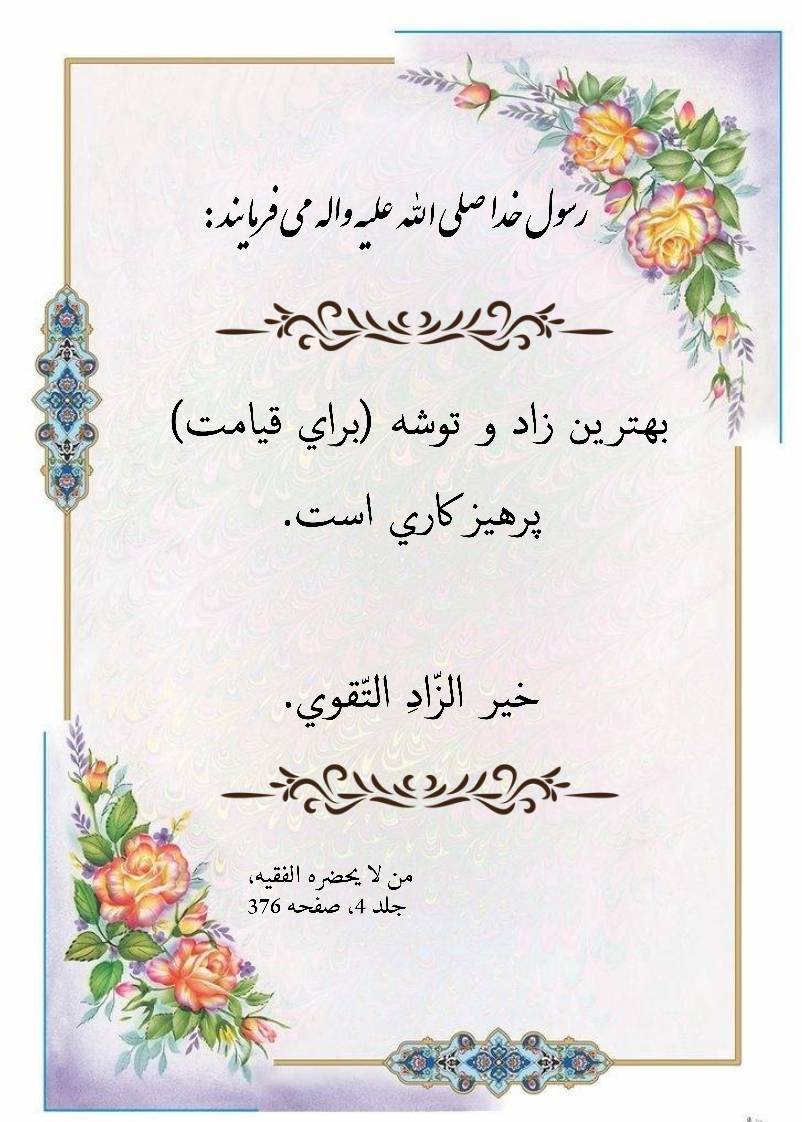 رسول خدا صلی الله علیه واله می فرمایند :
بهترين زاد و توشه (براي قيامت)
پرهيزكاري است.
خير الزّادِ التّقوي.
من لا يحضره الفقيه،
جلد 4، صفحه 376